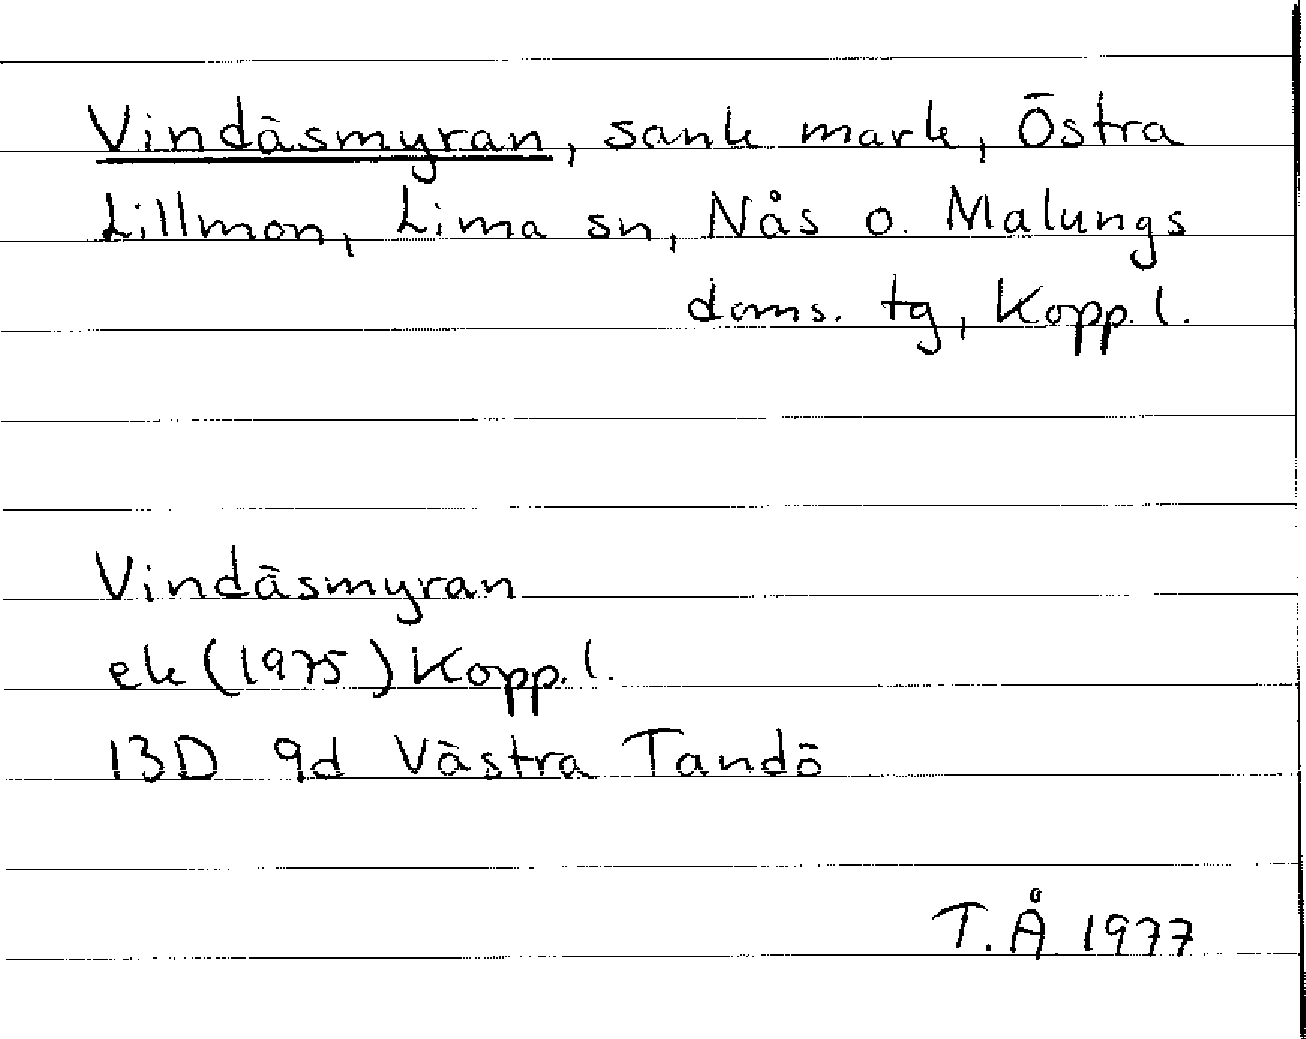 Vindäsmyran, sank mark, Östra
Lillmon, Lima sn, Nås o. Malungs
doms. tg, Kopp. l.
Vindäsmyran
ek (1975) Kopp. l.
13D 9d Västra Tandö
T. Å 1977